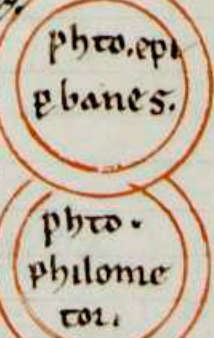 phto.epi
phanes.
phto.
philome
tor.